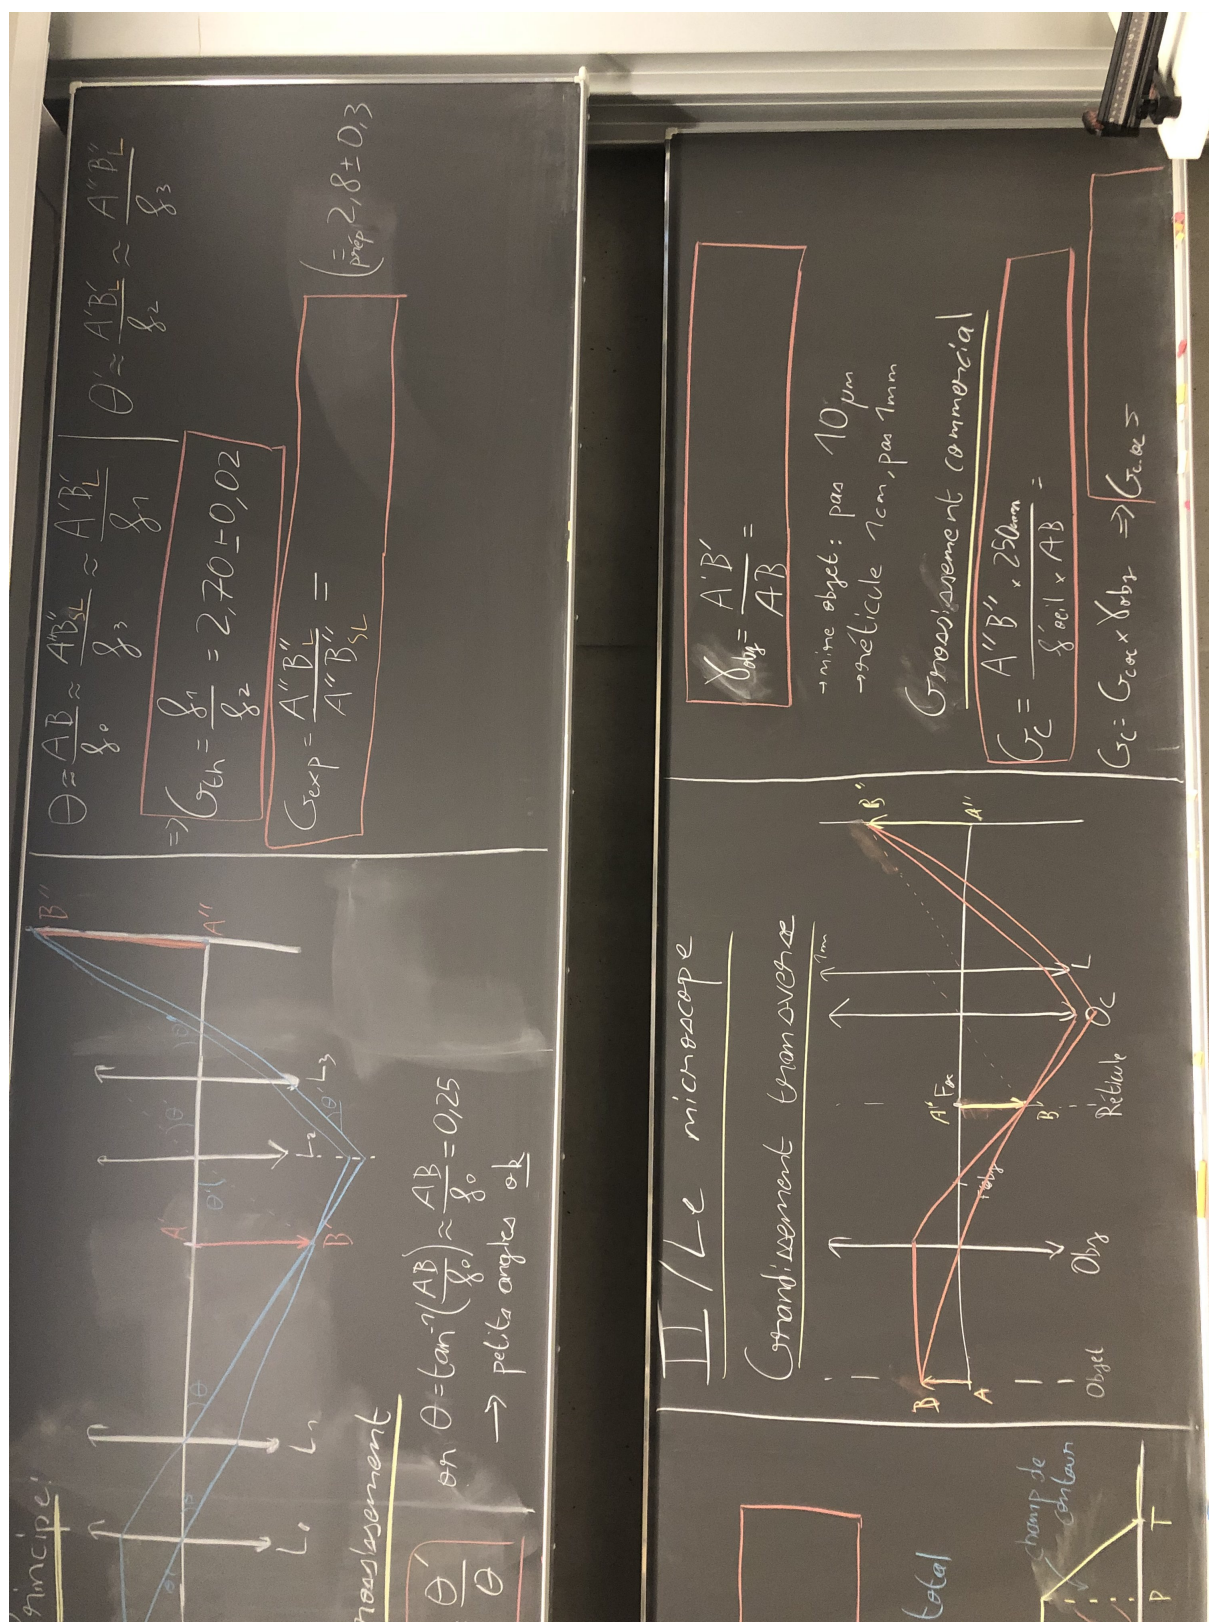 principe:
L₀
L₁
θ
A'
B'
θ'
L₂
L₃
θ'
θ''
A''
B''
rossissement
θ'
θ
or θ = tan⁻¹(AB/f₀) ≈ AB/f₀ = 0,25
→ petits angles ok
θ ≈ AB/f₀ ≈ A''B''SL/f₃ ≈ A'B'L/f₁
θ' ≈ A'B'L/f₂ ≈ A''B''L/f₃
⇒ Gth = f₁/f₂ = 2,70 ± 0,02
Gexp = A''B''L/A''B''SL =
(=prép 2,8 ± 0,3
total
champ de
contour
P
T
II / Le microscope
Grandissement transverse
B
A
Objet
Obj
F'obj
A' Foc
B'
Réticule
Oc
L
B''
A''
γobj = A'B'/AB =
→ mire objet : pas 10 μm
→ réticule 1cm, pas 1mm
Grossissement commercial
Gc = A''B'' × 250mm / f'œil × AB =
Gc = Gcoc × γobj ⇒ Gc,oc =